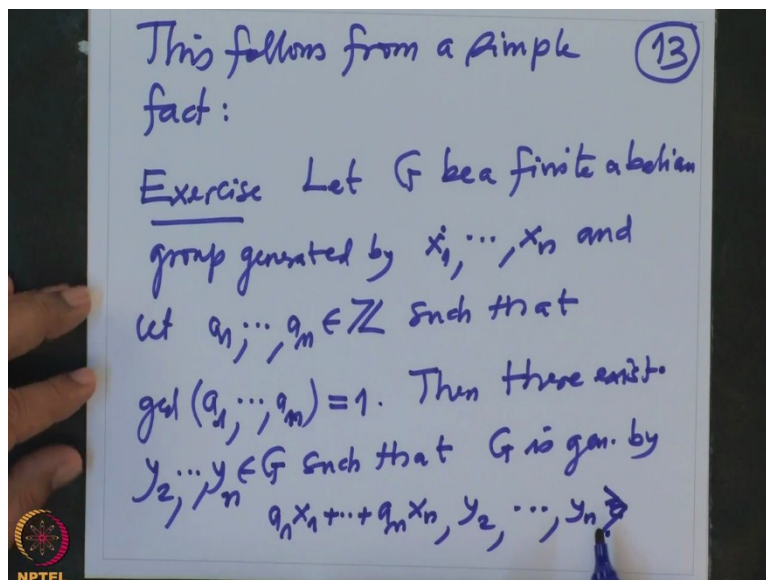 This follows from a simple
13
fact:
Exercise Let G be a finite abelian
group generated by x₁, ⋯, xₙ and
let a₁, ⋯, aₙ ∈ ℤ such that
gcd (a₁, ⋯, aₙ) = 1. Then there exist
y₂, ⋯, yₙ ∈ G such that G is gen. by
a₁x₁ + ⋯ + aₙxₙ, y₂, ⋯, yₙ
NPTEL